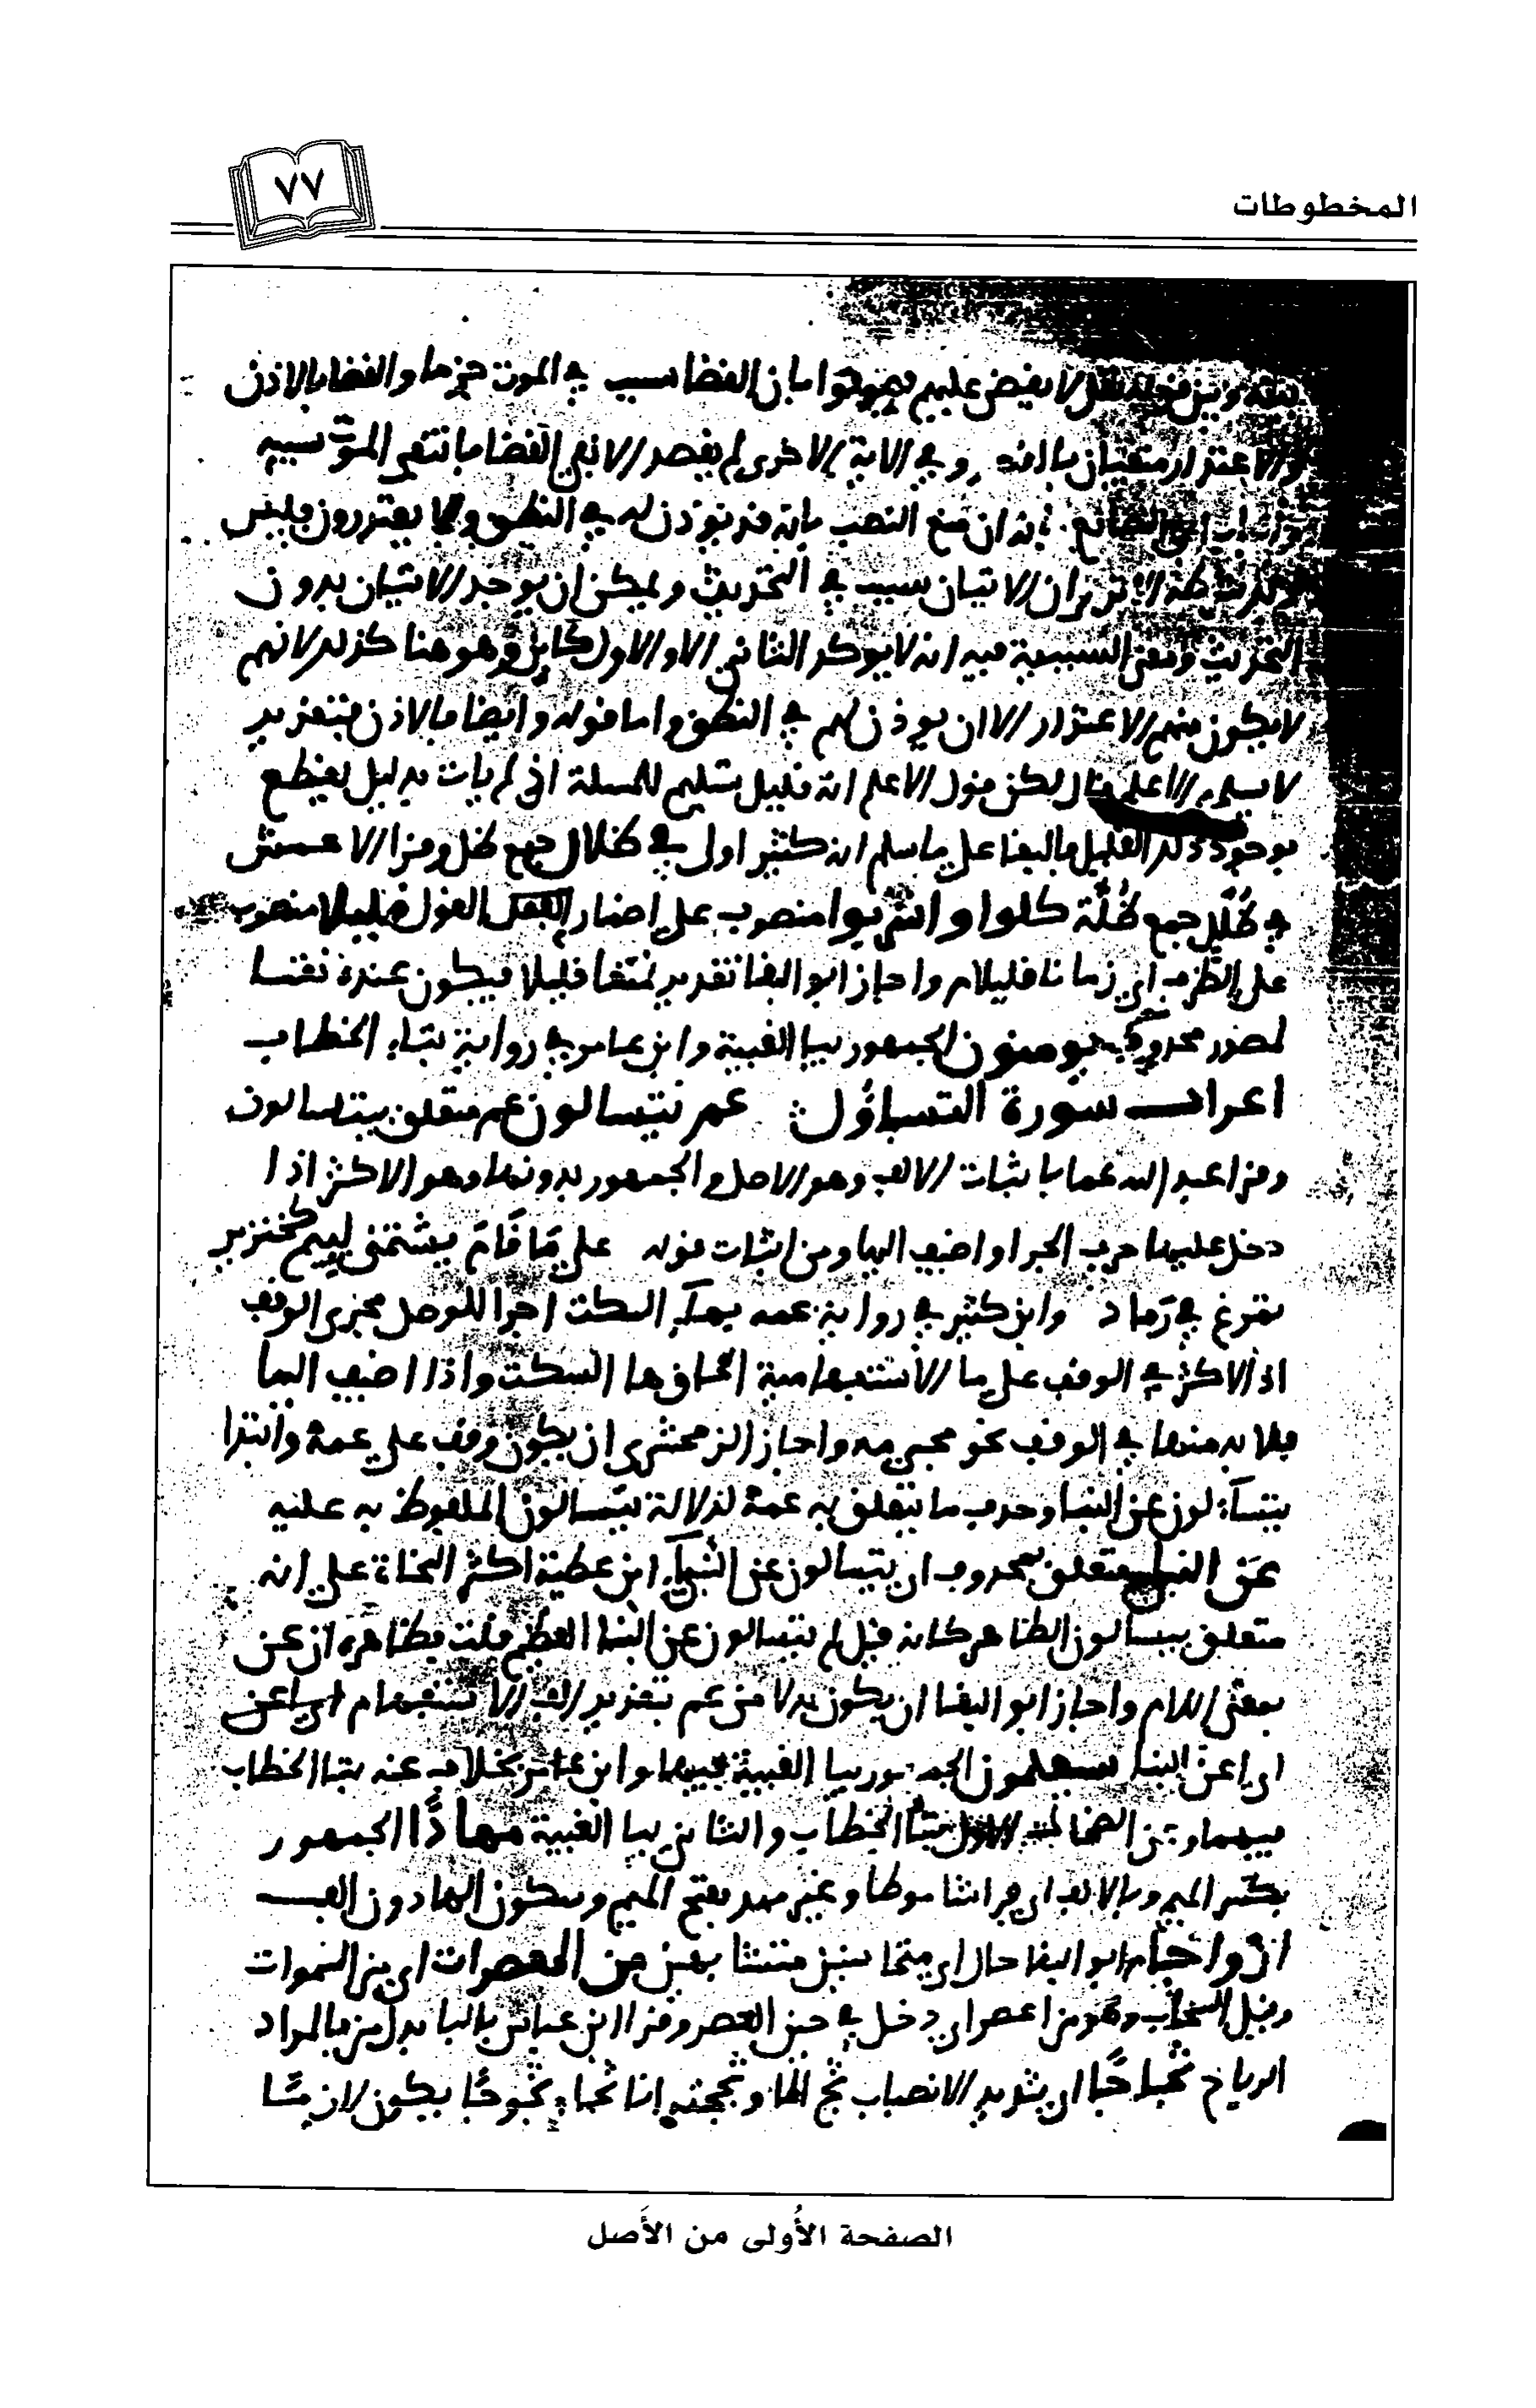 المخطوطات
٧٧
لا يقضى عليهم فيموتوا بان القضا سبب في الموت جزما والقضا بالاذن
والاعتذار منفيان بالفه وفي الاية الاخرى لم يقصد الا نفي القضا بانتفى الموت سببه
ان منع النصب بانه قد يوذن له في النطق ولا يعتذرون فليس
ان الاتيان سبب في التحديث ويمكن ان يوجد الاتيان بدون
التحديث ومعنى السببية فيه انه لا يوكد الثاني الا والاول كاين وهو هنا كذلك لانهم
لا يكون منهم الاعتذار الا ان يوذن لهم في النطق واما قوله وايضا بالاذن بتقدير
لا يسلم الاعلم قال لكن قول الاعلم انه قليل تسليم للمسلة اذ لم يات بدليل يقطع
بوجود ذلك القليل بالبقا على ما سلم انه كثير اولى في ظلال جمع ظل وقرا الاعمش
في ظلل جمع ظلة كلوا واشربوا منصوب على اضمار القول قليلا منصوب
على الظرف اي زمانا قليلا واجاز ابو البقا تقدير تمتعا قليلا فيكون عنده نعتا
لمصدر محذوف يومنون الجمهور بيا الغيبة وابن عامر في رواية بتاء الخطاب
اعراب سورة التساؤل عم يتسالون عم متعلق بيتسالون
وقرا عبد الله عما باثبات الالف وهو الاصل والجمهور بدونها وهو الاكثر اذا
دخل عليها حرف الجر او اضيف اليها ومن اثبات قوله على ما قام يشتمني لييم كخنزير
تمرغ في رماد وابن كثير في رواية عمه بهاء السكت اجرا للوصل مجرى الوقف
اذ الاكثر في الوقف على ما الاستفهامية الحاق ها السكت واذا اضيف اليها
فلا بد منها في الوقف نحو مجي مه واجاز الزمخشري ان يكون وقف على عمه وابتدا
يتسآءلون عن النبا وحذف ما يتعلق به عمه لدلالة يتسالون الملفوظ به عليه
عن النبا متعلق بمحذوف اي يتسالون عن النبإ ابن عطية اكثر النحاة على انه
متعلق بيتسالون الظاهر كانه قيل لم يتسالون عن النبا العظيم قلت فظاهره ان عن
بمعنى اللام واجاز ابو البقا ان يكون بدلا من عم بتقدير الف الاستفهام اي اعن
اي اعن النبا سيعلمون الجمهور بيا الغيبة فيهما وابن عامر بخلاف عنه بتا الخطاب
فيهما وعن الضحاك الاول بتا الخطاب والثاني بيا الغيبة مهادًا الجمهور
بكسر الميم وبالالف اي فراشا موطا وغيرهم مهد بفتح الميم وسكون الها دون الف
ازواجا ابو البقا حال اي متجانسين متشابهين من المعصرات اي من السموات
وقيل السحاب وهو من اعصر اي دخل في حين العصر وقرا ابن عباس بالبا بدل من فالمراد
الرياح ثجاجًا اي شديد الانصباب ثج الما وثججته انا ثجا وثجوجًا يكون لازما
الصفحة الأولى من الأصل